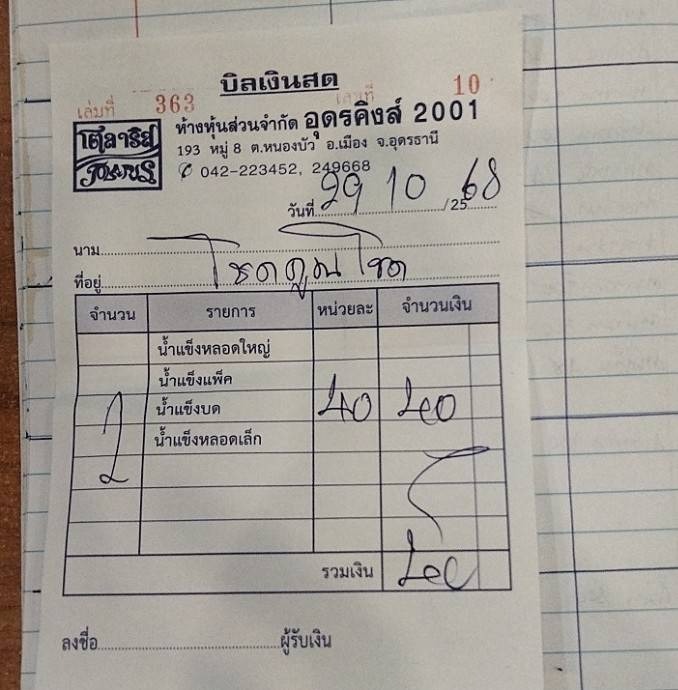 บิลเงินสด
เล่มที่ 363 เลขที่ 10
โพลาริส
POLARIS
ห้างหุ้นส่วนจำกัด อุดรคิงส์ 2001
193 หมู่ 8 ต.หนองบัว อ.เมือง จ.อุดรธานี
✆ 042-223452, 249668
วันที่ 29 10 /2568
นาม
ที่อยู่
จำนวน รายการ หน่วยละ จำนวนเงิน
น้ำแข็งหลอดใหญ่
น้ำแข็งแพ็ค
น้ำแข็งบด 40
น้ำแข็งหลอดเล็ก
รวมเงิน
ลงชื่อ ผู้รับเงิน